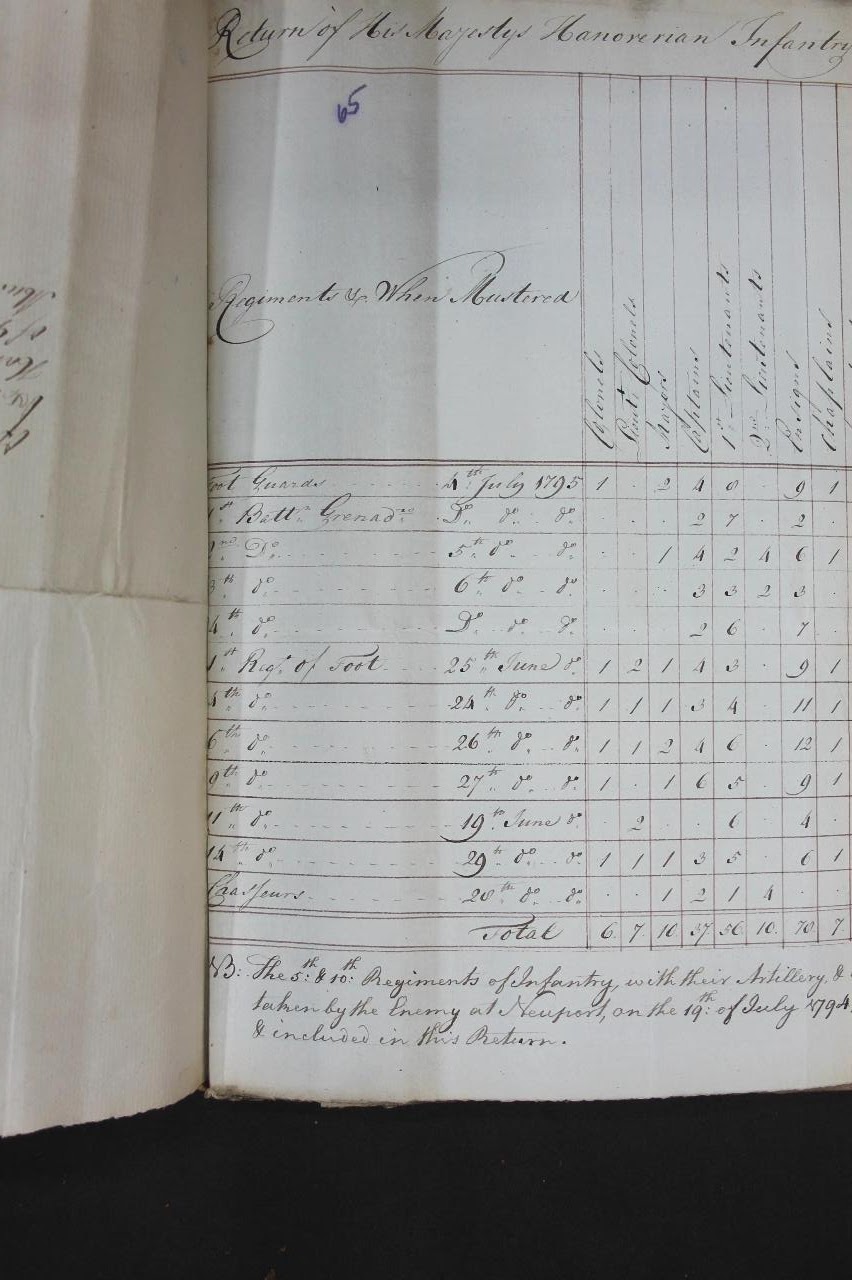 Return of His Majestys Hanoverian Infantry
65
Regiments & When Mustered
Colonels
Lieut. Colonels
Majors
Captains
1st Lieutenants
2nd Lieutenants
Ensigns
Chaplains
oot Guards 4th July 1795 1 . 2 4 8 . 9 1
1st Battn Grenadrs Do do do . . . 2 7 . 2 .
2nd Do 5th do do . . 1 4 2 4 6 1
3th do 6th do do . . . 3 3 2 3 .
4th do Do do do . . . 2 6 . 7 .
1st Regt. of Foot 25th June do 1 2 1 4 3 . 9 1
4th do 24th do do 1 1 1 3 4 . 11 1
6th do 26th do do 1 1 2 4 6 . 12 1
9th do 27th do do 1 . 1 6 5 . 9 1
11th do 19th June do . 2 . . 6 . 4 .
14th do 29th do do 1 1 1 3 5 . 6 1
Chasseurs 28th do do . . 1 2 1 4 . .
Total 6 7 10 37 56 10 70 7
NB: The 5th & 10th Regiments of Infantry, with their Artillery, &
taken by the Enemy at Neuport, on the 19th of July 1794,
& included in this Return.